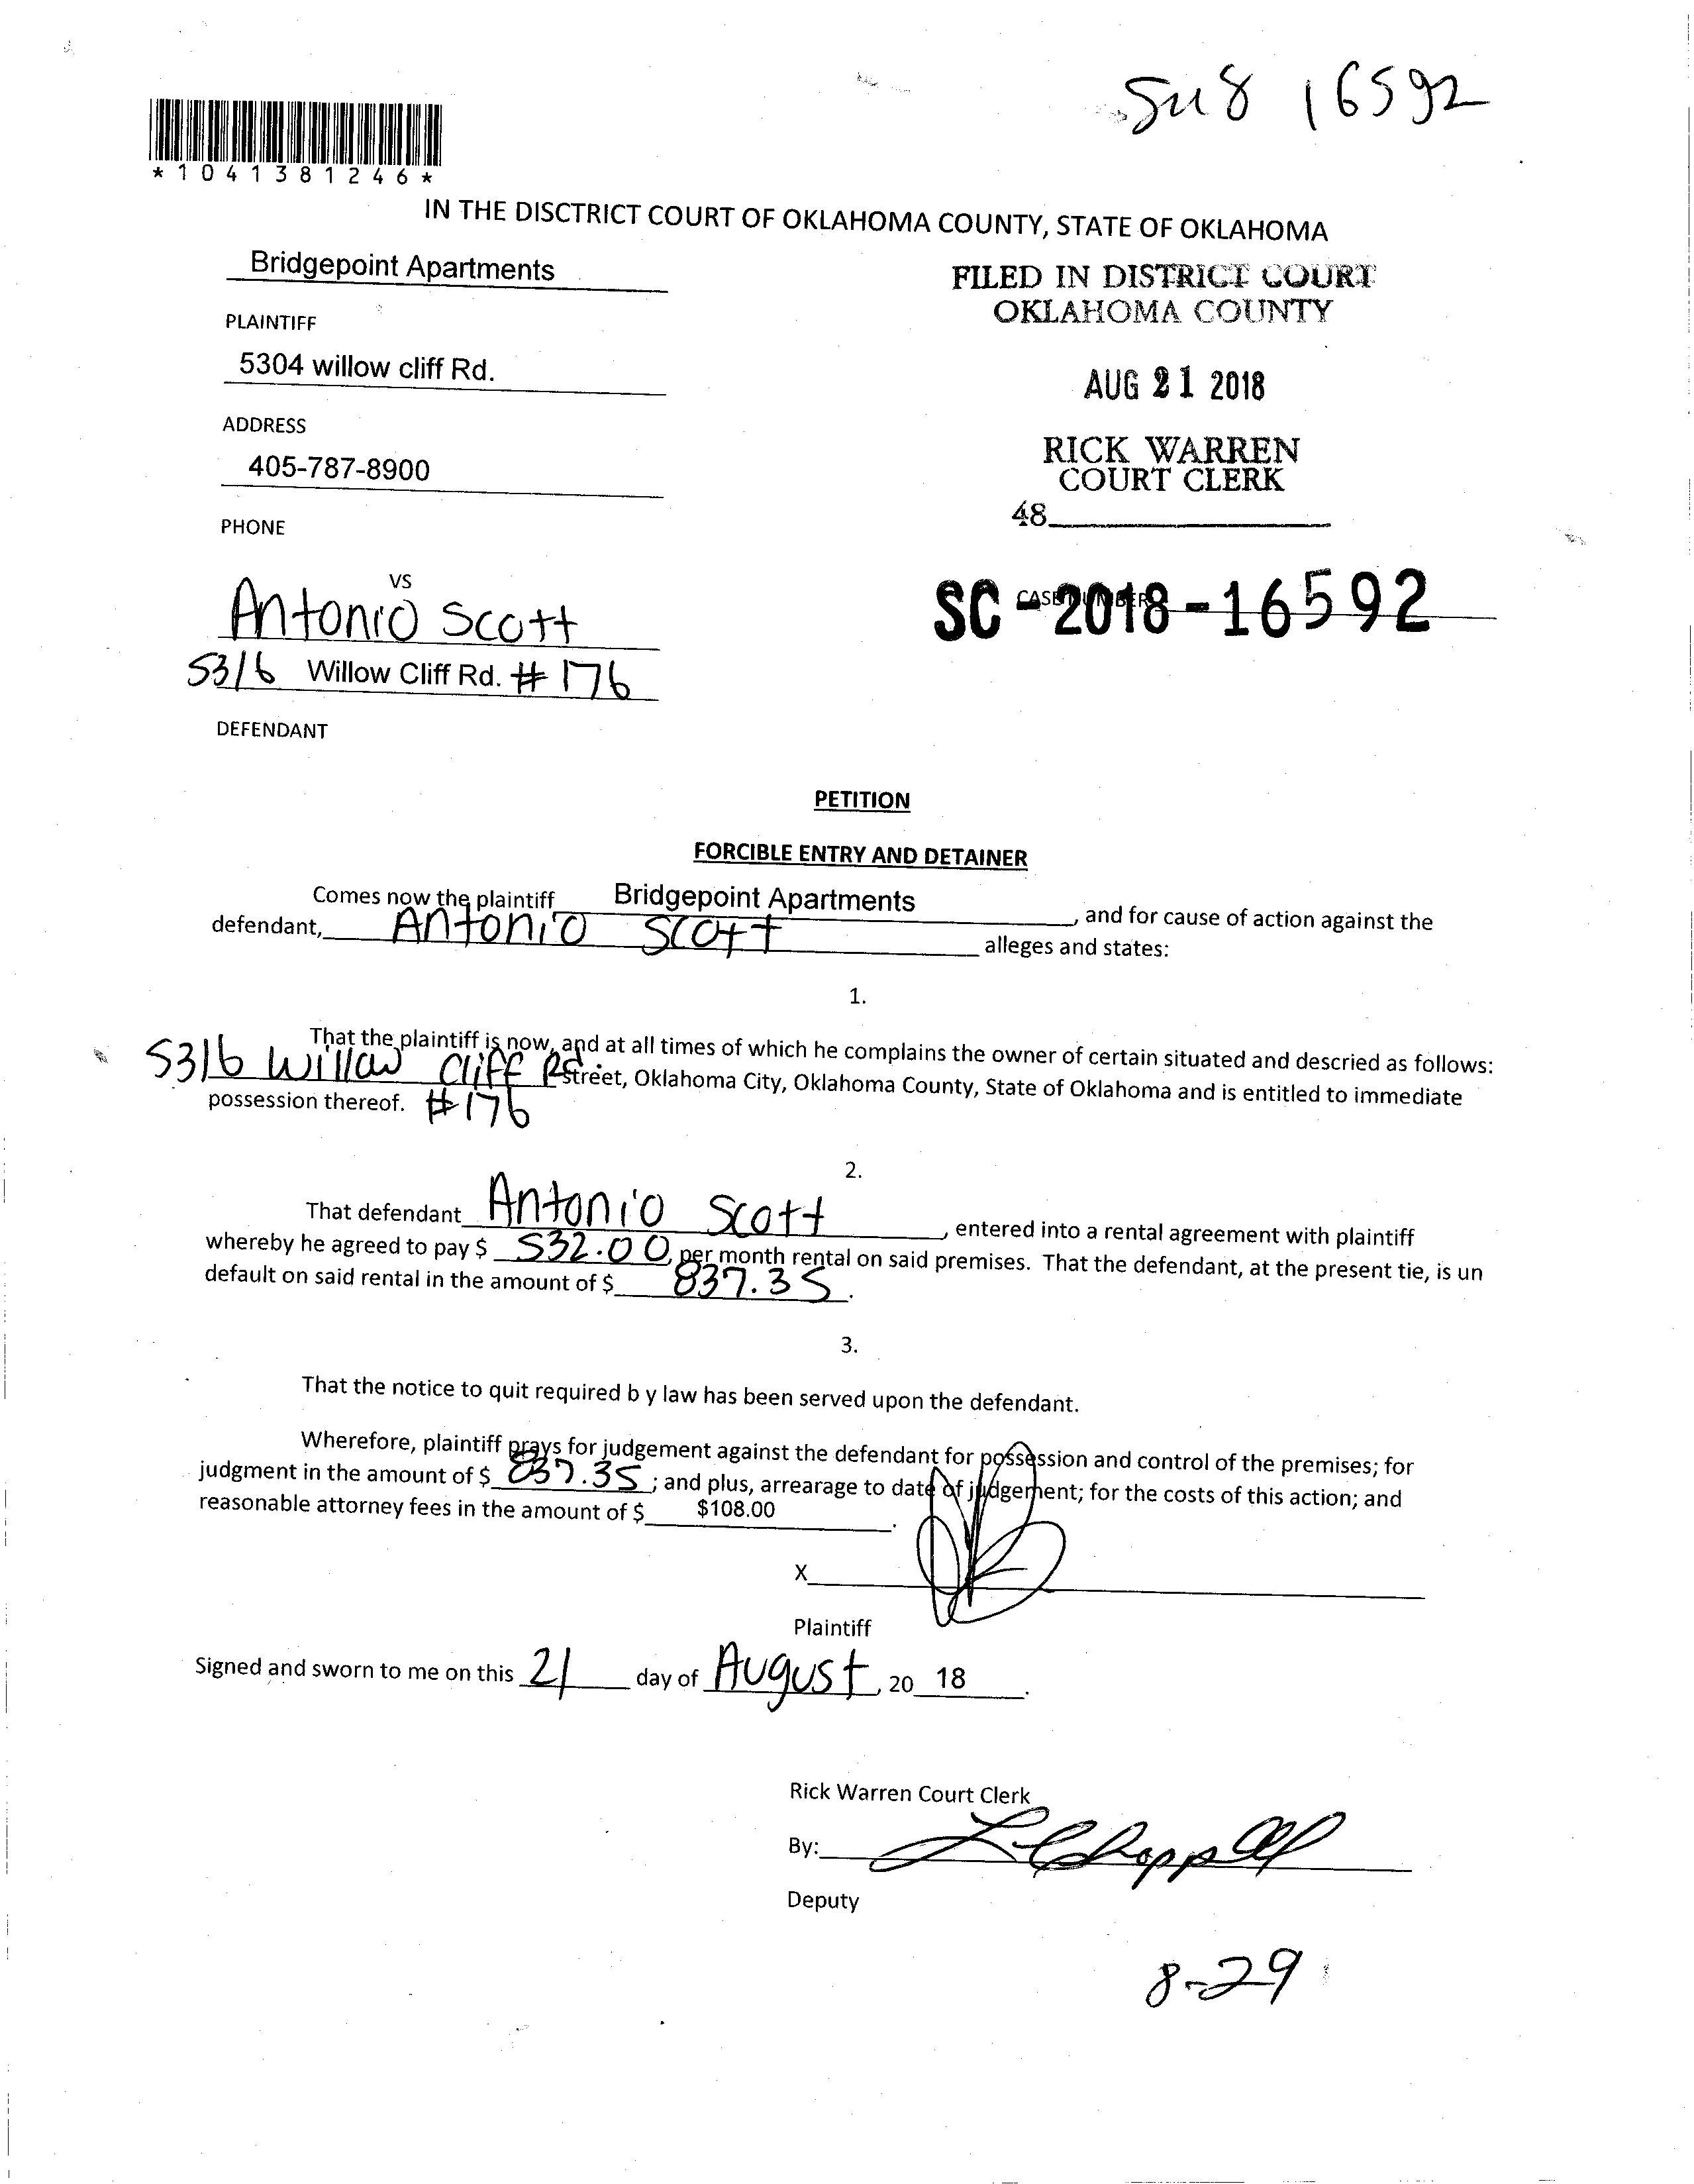 Su8 16592
*1041381246*
IN THE DISCTRICT COURT OF OKLAHOMA COUNTY, STATE OF OKLAHOMA
Bridgepoint Apartments
PLAINTIFF
5304 willow cliff Rd.
ADDRESS
405-787-8900
PHONE
FILED IN DISTRICT COURT
OKLAHOMA COUNTY
AUG 21 2018
RICK WARREN
COURT CLERK
48
VS
Antonio Scott
5316 Willow Cliff Rd. #176
DEFENDANT
CASE NUMBER
SC-2018-16592
PETITION
FORCIBLE ENTRY AND DETAINER
Comes now the plaintiff Bridgepoint Apartments, and for cause of action against the
defendant, Antonio Scott alleges and states:
1.
That the plaintiff is now, and at all times of which he complains the owner of certain situated and descried as follows:
5316 Willow Cliff Rd Street, Oklahoma City, Oklahoma County, State of Oklahoma and is entitled to immediate
possession thereof. #176
2.
That defendant Antonio Scott, entered into a rental agreement with plaintiff
whereby he agreed to pay $ 532.00, per month rental on said premises. That the defendant, at the present tie, is un
default on said rental in the amount of $ 837.35.
3.
That the notice to quit required b y law has been served upon the defendant.
Wherefore, plaintiff prays for judgement against the defendant for possession and control of the premises; for
judgment in the amount of $ 837.35; and plus, arrearage to date of judgement; for the costs of this action; and
reasonable attorney fees in the amount of $ $108.00.
X
Plaintiff
Signed and sworn to me on this 21 day of August, 20 18.
Rick Warren Court Clerk
By: L Chappell
Deputy
8-29